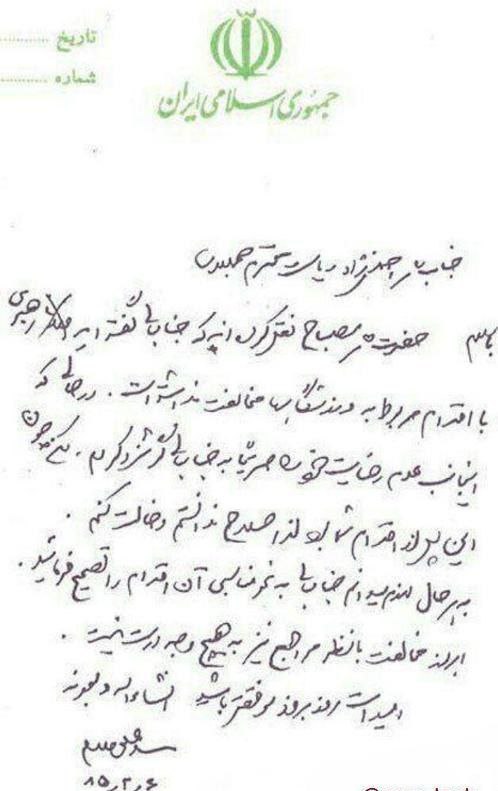 تاریخ ............
شماره ............
جمهوری اسلامی ایران
جناب آقای احمدی‌نژاد ریاست محترم جمهوری
با سلام حضرت آقای مصباح نقل کردند که جنابعالی گفته‌اید رهبری
با اقدام مربوط به ورزشگاهها مخالفت نداشته است. در حالی که
اینجانب عدم رضایت خود را صریحا به جنابعالی گوشزد کردم.
این پس از اقدام شما بود لذا صلاح ندانستم دخالت کنم.
به هر حال لازم میدانم جنابعالی به نحو مناسبی آن اقدام را تصحیح فرمائید.
ابراز مخالفت با نظر مراجع نیز به هیچ وجه درست نیست.
امید است روز بروز موفق‌تر باشید انشاءاله و بعونه